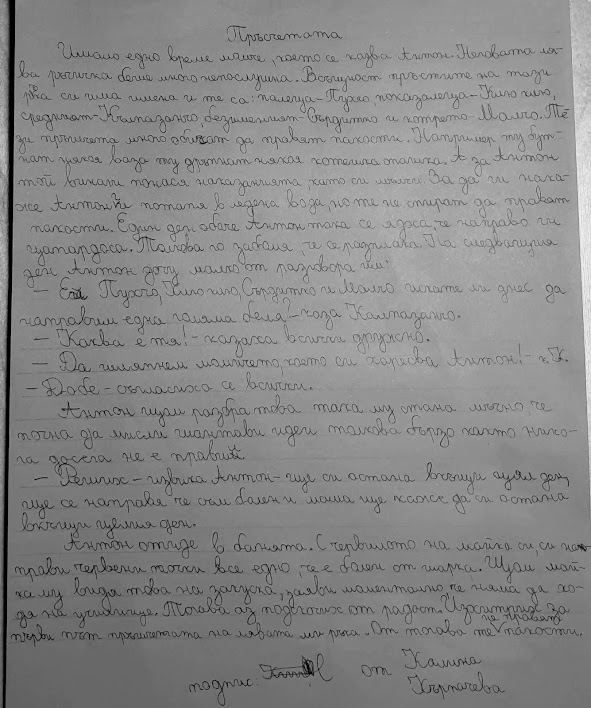 Пръстетата
Имало едно време момче, което се казва Антон. Неговата ля-
ва ръчичка беше много непослушна. Всъщност пръстите на тази
ръка си има имена и те са: палеца-Пухчо, показалеца-Кико
средният-Кълпазанчо, безименният-Сърдитко и кутрето-Малчо. Те-
зи пръстчета много обичат да правят пакости. Например ту бут-
нат някоя ваза ту дръпнат някоя котешка опашка. А за Антон
той винаги понася наказанията, като си мълчи. За да ги нака-
же Антон ги потапя в ледена вода, но те не спират да правят
пакости. Един ден обаче Антон така се ядоса, че направо ги
цапардоса. Толкова го заболя, че се разплака. На следващия
ден Антон дочу малко от разговора им:
– Ей Пухчо, Кико, Сърдитко и Малчо искате ли днес да
направим една голяма беля? - каза Калпазанчо.
– Каква е тя! - казаха всички дружно.
– Да щипнем момичето, което си харесва Антон! - к. К.
– Добе - съгласиха се всички.
Антон щом разбра това така му стана мъчно, че
почна да мисли шантави идеи толкова бързо както нико-
га досега не е правил.
– Реших - извика Антон - ще си остана вкъщи цял ден,
ще се направя че съм болен и мама ще каже да си остана
вкъщи целия ден.
Антон отиде в банята. С червилото на майка си, си на-
прави червени точки все едно, че е болен от шарка. Щом май-
ка му видя това на закуска, заяви моментално, че няма да хо-
дя на училище. Тогава аз подскочих от радост. Изхитрих за
първи път пръстчетата на лявата ми ръка. От тогава те не правят пакости.
подпис: от Калина
Кърпачева